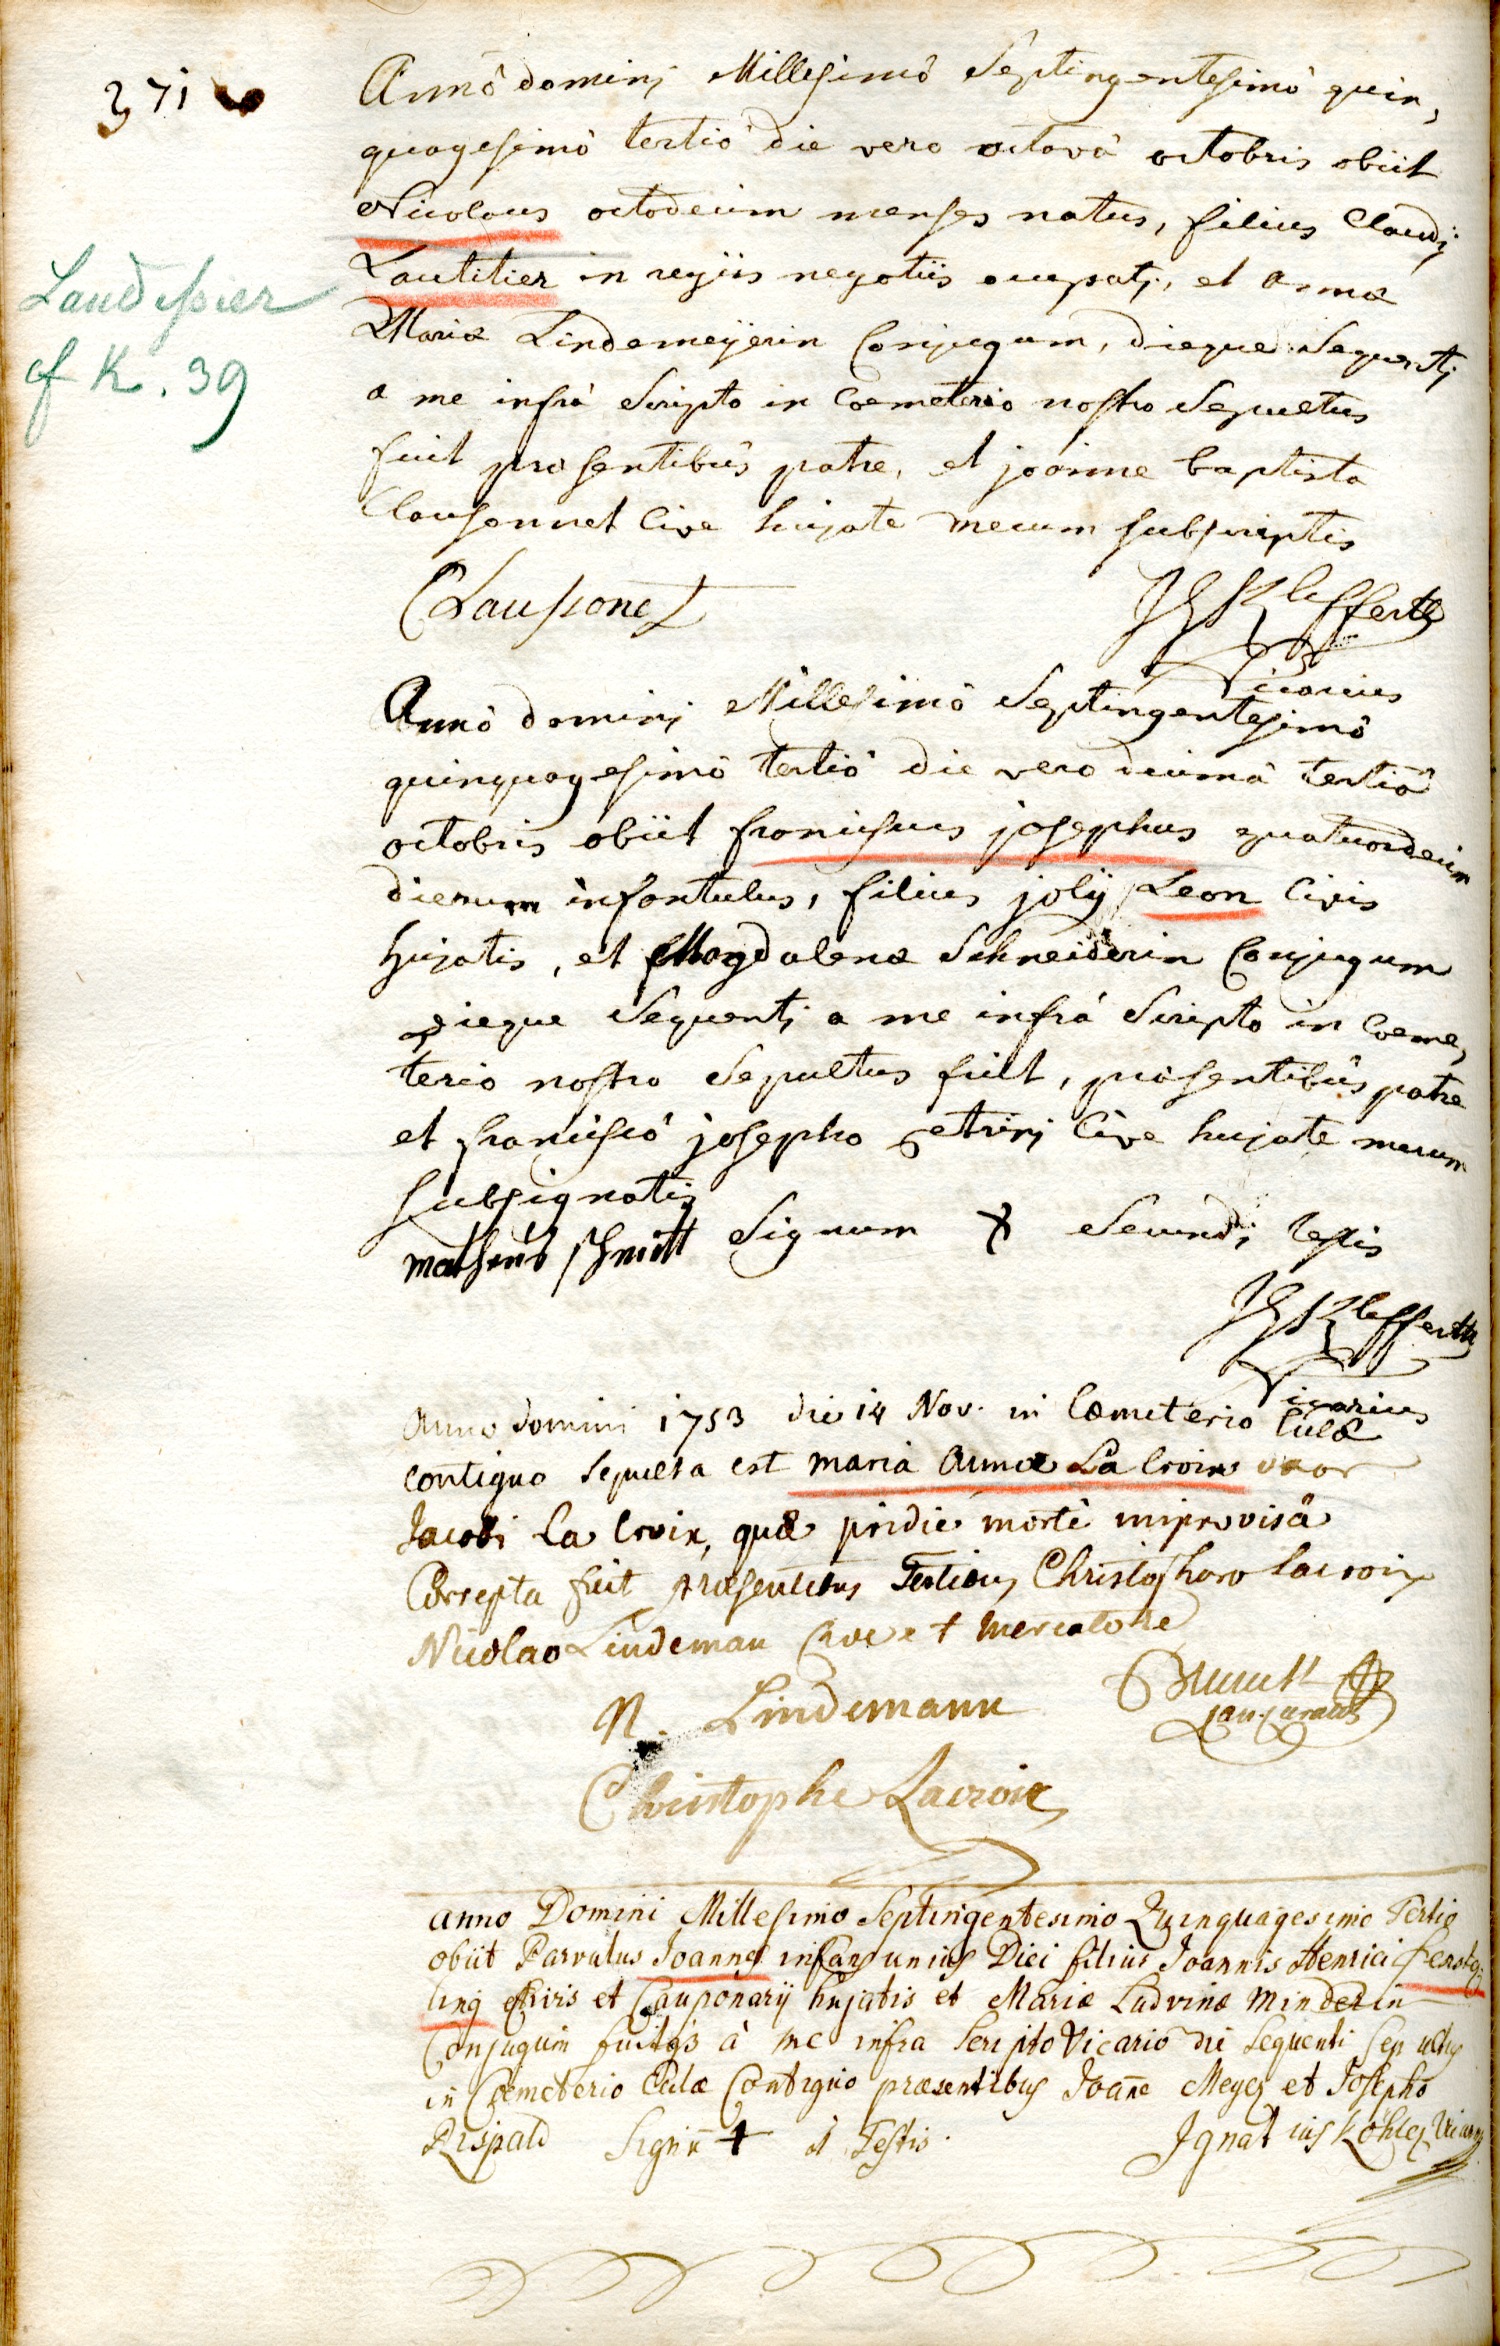 371
Annô dominj Millesimô Septingentesimô quin,
quagesimô tertiô die vero octavâ octobris obiit
Nicolaus octodecim menses natus, filius Claudij
Lautitier in regiis negotiis occupatj, et annæ
Mariæ Lindemeyerin Conjugum, dieque Sequentj
a me infrà Scripto in Coemeterio nostro Sepultus
fuit præsentibûs patre, et joanne baptista
Clausonnet Cive hujate mecum subscriptis
Laudessier
cf K. 39
Clausonet
Klefferth
Vicarius
Annô dominj Millesimô Septingentesimô
quinquagesimô tertiô die vero decimâ tertiâ
octobris obiit franciscus josephus quatuordecim
dierum infantulus, filius jolij Leon Civis
hujatis, et Magdalenæ Schneiderin Conjugum
dieque Sequentj a me infrà Scripto in Coeme,
terio nostro Sepultus fuit, præsentibûs patre
et franciscô josepho petrinj Cive hujate mecum
subsignatis
matheus schmitt Signum x Secundj testis
Klefferth
Vicarius
Anno domini 1753 die 14 Nov. in Cœmeterio Eulæ
contiguo sepulta est maria Anna La Croix uxor
Jacobi La Croix, quæ pridie morte improvisâ
Correpta fuit præsentibus Testibus Christophoro lacroix
Nicolao Lindeman Cive et mercatore
N. Lindemann
Christophe Lacroix
anno Domini Millesimo Septingentesimo Quinquagesimo Tertio
obiit Parvulus Joannes infans unius Diei filius Joannis Henrici
Civis et Cauponarij hujatis et Mariæ Ludvinæ Minderin
Conjugum à me infra Scripto Vicario die Sequenti Sepultus
in Coemeterio Eulæ Contiguo præsentibus Joane Meyer et Josepho
Rispald Signu + Testis. Ignatius Kohler Vicarius